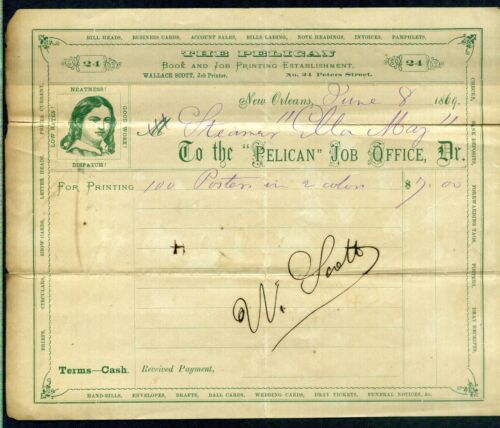 BILL HEADS, BUSINESS CARDS, ACCOUNT SALES, BILLS LADING, NOTE HEADINGS, INVOICES, PAMPHLETS,
THE PELICAN
24 BOOK AND JOB PRINTING ESTABLISHMENT, 24
WALLACE SCOTT, Job Printer. No. 24 Peters Street.
NEATNESS!
LOW RATES!
GOOD WORK!
DISPATCH!
New Orleans, June 8 1869.
Steamer "Ella May"
To the "PELICAN" JOB OFFICE, Dr.
FOR PRINTING 100 Posters in 2 colors $7.00
W. Scott
Terms—Cash. Received Payment,
BRIEFS, CIRCULARS, SHOW CARDS, LETTER HEADS, PRICES CURRENT,
CHECKS, BANK DEPOSITS, FORWARDERS TAGS, POSTERS, DRAY RECEIPTS.
HAND-BILLS, ENVELOPES, DRAFTS, BALL CARDS, WEDDING CARDS, DRAY TICKETS, FUNERAL NOTICES, &c.